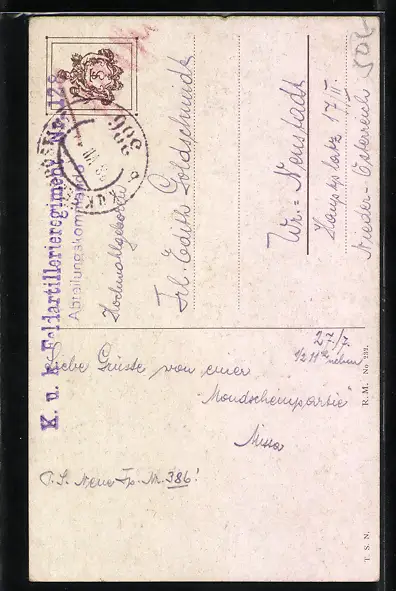 K. u. k. Feldartillerieregiment Nr. 128
Abteilungskommando
386
Hochwohlgeboren
Frl. Edith Goldschmidt
Wr.-Neustadt
Hauptplatz 17/II
Nieder-Österreich
27./7.
1/2 11h
Liebe Grüsse von einer
"Mondscheinpartie"
P.S. Neue Fp. Nr. 386!
R. M. No 232.
T. S. N.